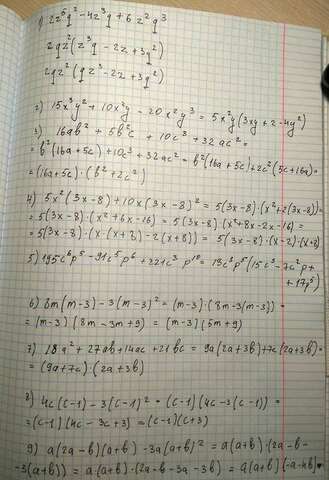 1) 2z⁵q² - 4z³q + 6z²q³
2qz²(z³q - 2z + 3q²)
2qz²(qz³ - 2z + 3q²)
2) 15x³y² + 10x²y - 20x²y³ = 5x²y(3xy + 2 - 4y²)
3) 16ab² + 5b²c + 10c³ + 32ac² =
= b²(16a + 5c) + 10c³ + 32ac² = b²(16a + 5c) + 2c²(5c + 16a) =
= (16a + 5c) · (b² + 2c²)
4) 5x²(3x - 8) + 10x(3x - 8)² = 5(3x - 8) · (x² + 2(3x - 8)) =
= 5(3x - 8) · (x² + 6x - 16) = 5(3x - 8)(x² + 8x - 2x - 16) =
= 5(3x - 8) · (x · (x + 8) - 2(x + 8)) = 5(3x - 8) · (x - 2) · (x + 8)
5) 195c⁶p⁵ - 91c⁵p⁶ + 221c³p¹⁰ = 13c³p⁵(15c³ - 7c²p +
+ 17p⁵)
6) 8m(m - 3) - 3(m - 3)² = (m - 3) · (8m - 3(m - 3)) =
= (m - 3)(8m - 3m + 9) = (m - 3)(5m + 9)
7) 18a² + 27ab + 14ac + 21bc = 9a(2a + 3b) + 7c(2a + 3b) =
= (9a + 7c) · (2a + 3b)
8) 4c(c - 1) - 3(c - 1)² = (c - 1)(4c - 3(c - 1)) =
= (c - 1)(4c - 3c + 3) = (c - 1)(c + 3)
9) a(2a - b)(a + b) - 3a(a + b)² = a(a + b) · (2a - b -
- 3(a + b)) = a · (a + b) · (2a - b - 3a - 3b) = a(a + b)(-a - 4b) =